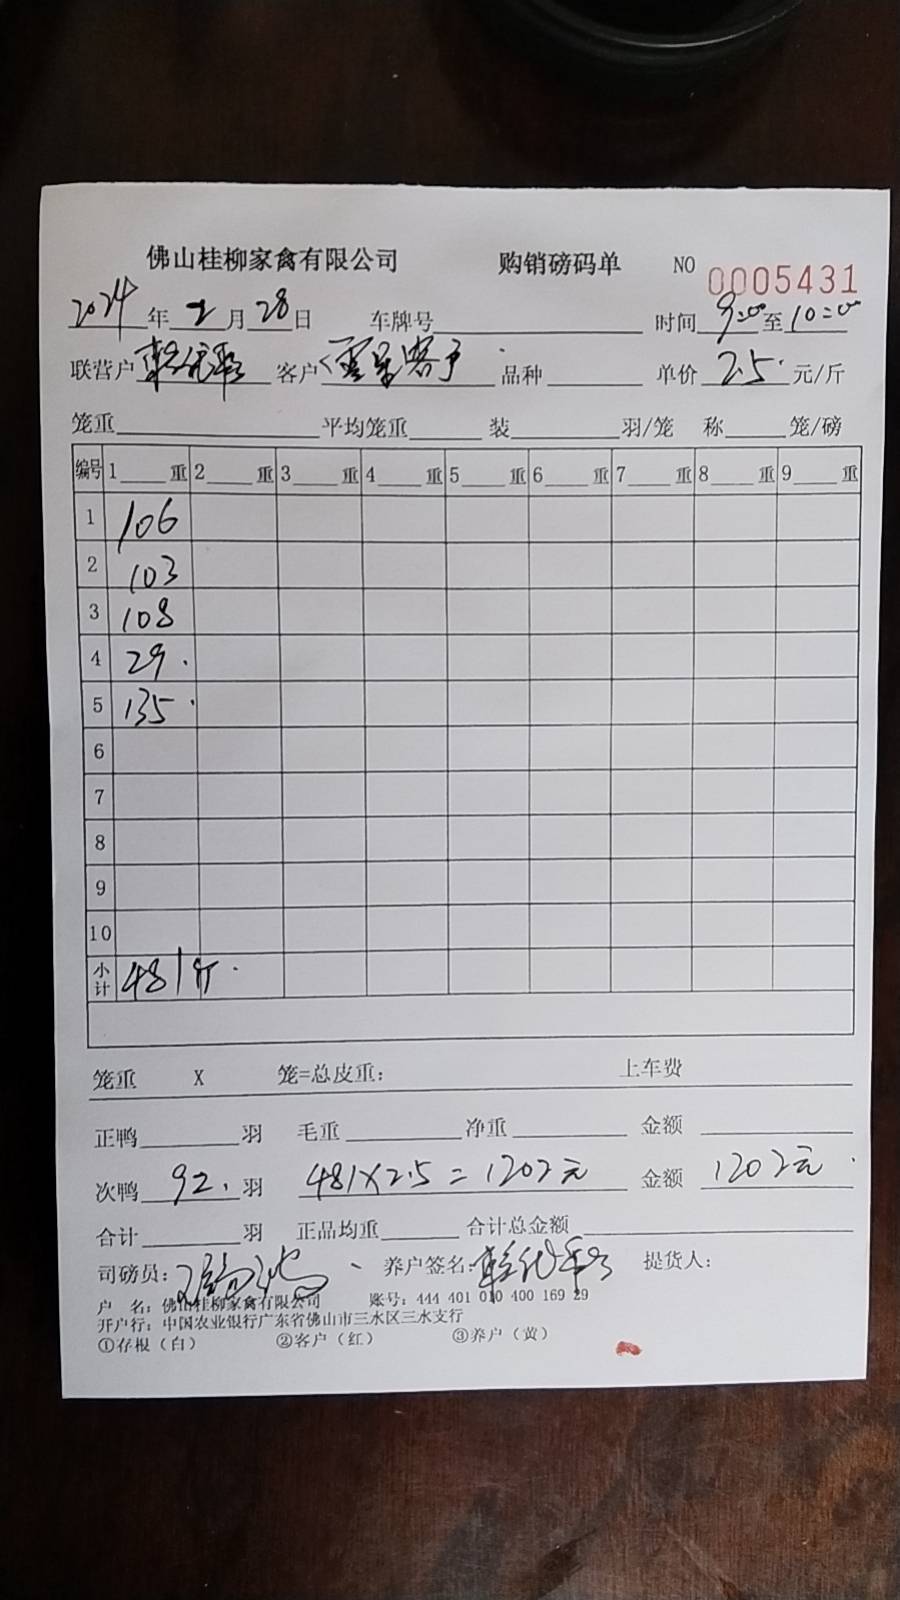 佛山桂柳家禽有限公司 购销磅码单 NO 0005431
2024年2月28日 车牌号 时间 9:00至10:00
联营户 客户 零星客户 品种 单价 2.5 元/斤
笼重 平均笼重 装 羽/笼 称 笼/磅
编号 1 重 2 重 3 重 4 重 5 重 6 重 7 重 8 重 9 重
1 106
2 103
3 108
4 29.
5 135.
6
7
8
9
10
小计 481斤.
笼重 X 笼=总皮重: 上车费
正鸭 羽 毛重 净重 金额
次鸭 92. 羽 481X2.5=1202元 金额 1202元.
合计 羽 正品均重 合计总金额
司磅员: 养户签名: 提货人:
户 名: 佛山桂柳家禽有限公司 账号: 444 401 010 400 169 29
开户行: 中国农业银行广东省佛山市三水区三水支行
①存根（白） ②客户（红） ③养户（黄）